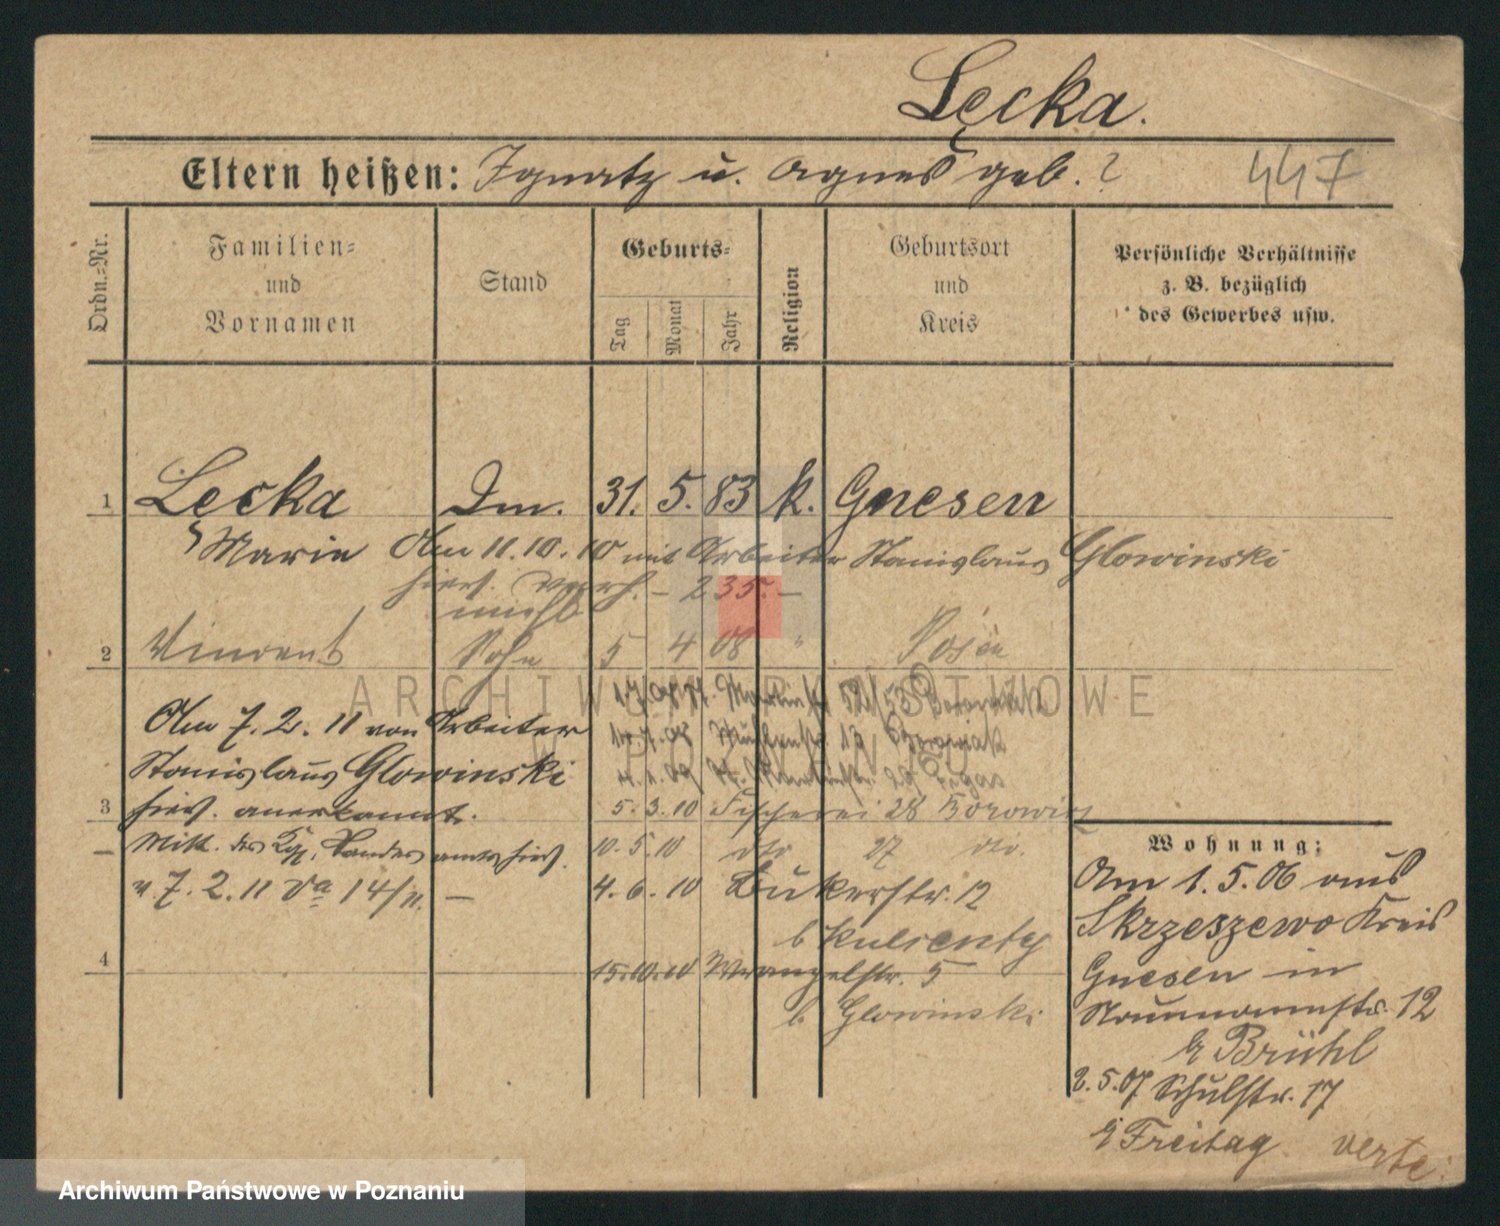 Lęcka.
Eltern heißen: Ignatz u. Agnes geb. ? 447
Ordn.=Nr.
Familien=
und
Vornamen
Stand
Geburts=
Tag
Monat
Jahr
Religion
Geburtsort
und
Kreis
Persönliche Verhältnisse
z. B. bezüglich
des Gewerbes usw.
1 Lecka Dm. 31. 5. 83 k. Gnesen
Marie Am 11.10.10 mit Arbeiter Stanislaus Glowinski
hies. verh. – 235. –
unehl
2 Vincent Sohn 5 4 08 " Posen
Am 7. 2. 11 von Arbeiter
Stanislaus Glowinski
3 hies. anerkannt.
Mitt. des Kgl. Standesamts hies.
v. 7. 2. 11 14/11. –
4
52/53
13
29
5. 3. 10 Fischerei 28 Borowicz
10. 5. 10 dto 27 dto.
4. 6. 10 Bukerstr. 12
b Kulcenty
15.10.10 Wrangelstr. 5
b Glowinski
Wohnung:
Am 1. 5. 06 aus
Skrzeszewo Kreis
Gnesen in
Naumannstr. 12
b/ Brühl
2. 5. 07 Schulstr. 17
b/ Freitag verte.
ARCHIWUM PAŃSTWOWE
W POZNANIU
Archiwum Państwowe w Poznaniu